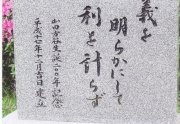 義を
明らかにして
利を計らず
山田方谷生誕二〇〇年記念
平成十七年十二月吉日建立